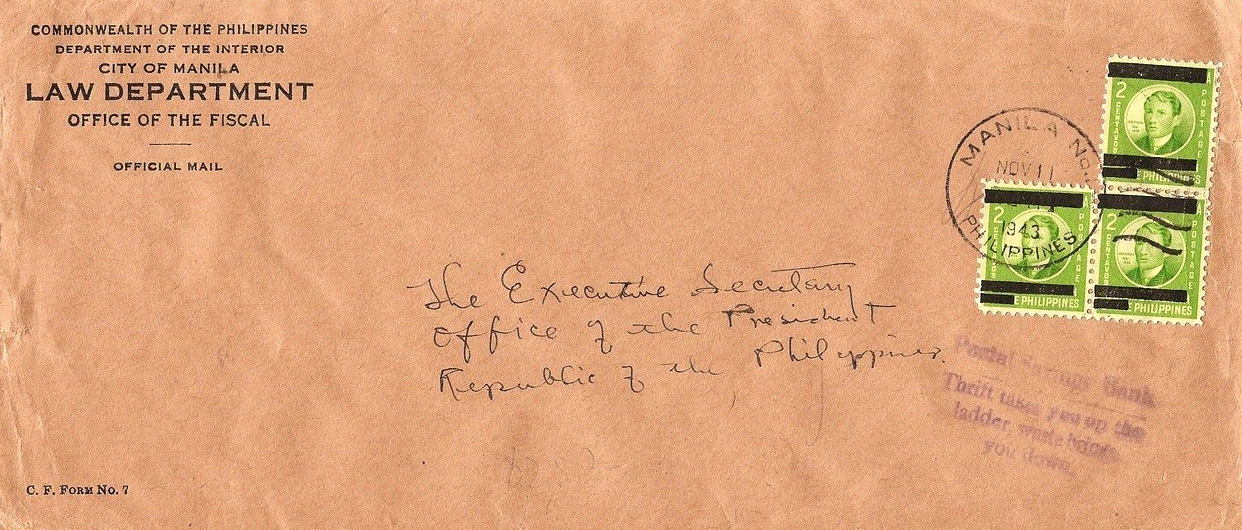 COMMONWEALTH OF THE PHILIPPINES
DEPARTMENT OF THE INTERIOR
CITY OF MANILA
LAW DEPARTMENT
OFFICE OF THE FISCAL
OFFICIAL MAIL
MANILA No.
NOV 11
1943
PHILIPPINES
2 CENTAVOS
POSTAGE
E PHILIPPINES
2 CENTAVOS
POSTAGE
E PHILIPPINES
2 CENTAVOS
POSTAGE
PHILIPPINES
The Executive Secretary
Office of the President
Republic of the Philippines.
Postal Savings Bank
Thrift takes you up the
ladder, waste brings
you down.
C. F. FORM NO. 7